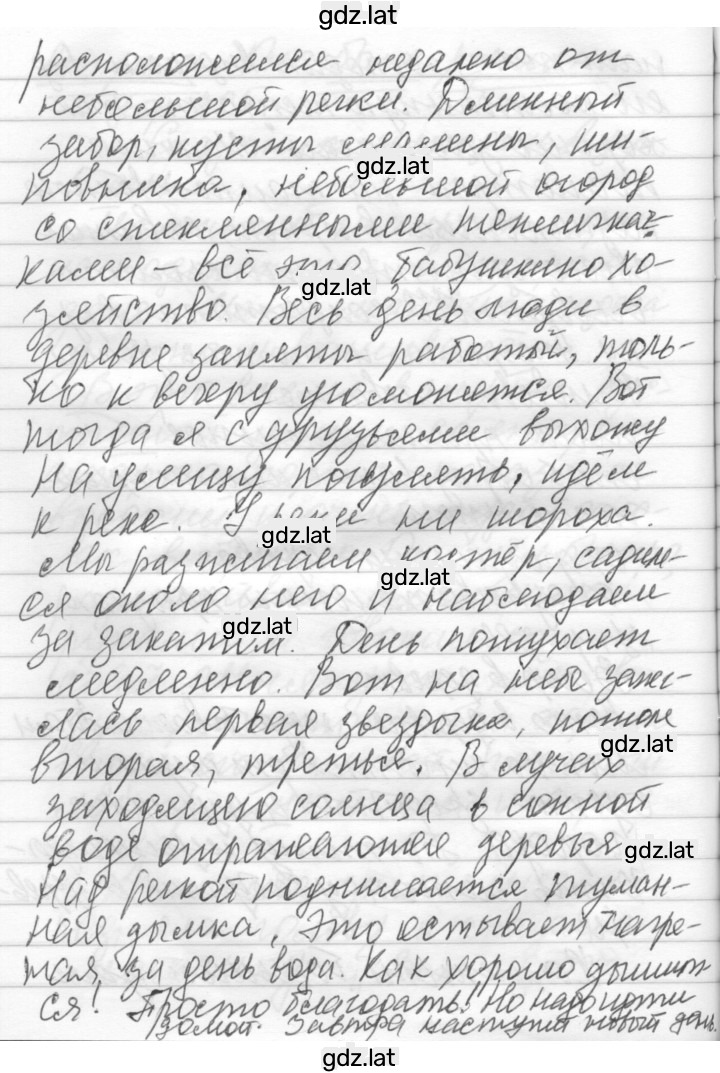 gdz.lat
расположился недалеко от
небольшой речки. Длинный
забор, кусты малины, ши-
gdz.lat
повника, небольшой огород
со стеклянными тепличка-
ками – всё это бабушкино хо-
gdz.lat
зяйство. Весь день люди в
деревне заняты работой, толь-
ко к вечеру угомонятся. Вот
тогда я с друзьями выхожу
на улицу погулять, идём
к реке. У реки ни шороха.
gdz.lat
Мы разжигаем костёр, садим-
gdz.lat
ся около него и наблюдаем
gdz.lat
за закатом. День потухает
медленно. Вот на небе заж-
лась первая звёздочка, потом
gdz.lat
вторая, третья. В лучах
заходящего солнца в сонной
воде отражаются деревья
gdz.lat
Над рекой поднимается туман-
ная дымка, это остывает нагре-
тая за день вода. Как хорошо дышит-
ся! Просто благодать! Но надо идти
домой. Завтра наступит новый день.
gdz.lat